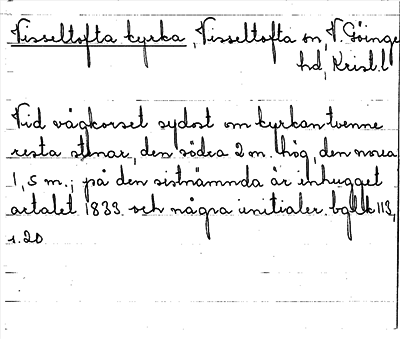 Visseltofta kyrka, Visseltofta sn, V. Göinge
hd, Krist. l
Vid vägkorset sydost om kyrkan tvenne
resta stenar, den södra 2 m. hög, den norra
1,5 m.; på den sistnämnda är inhugget
årtalet 1833 och några initialer. bglk 113,
s. 20